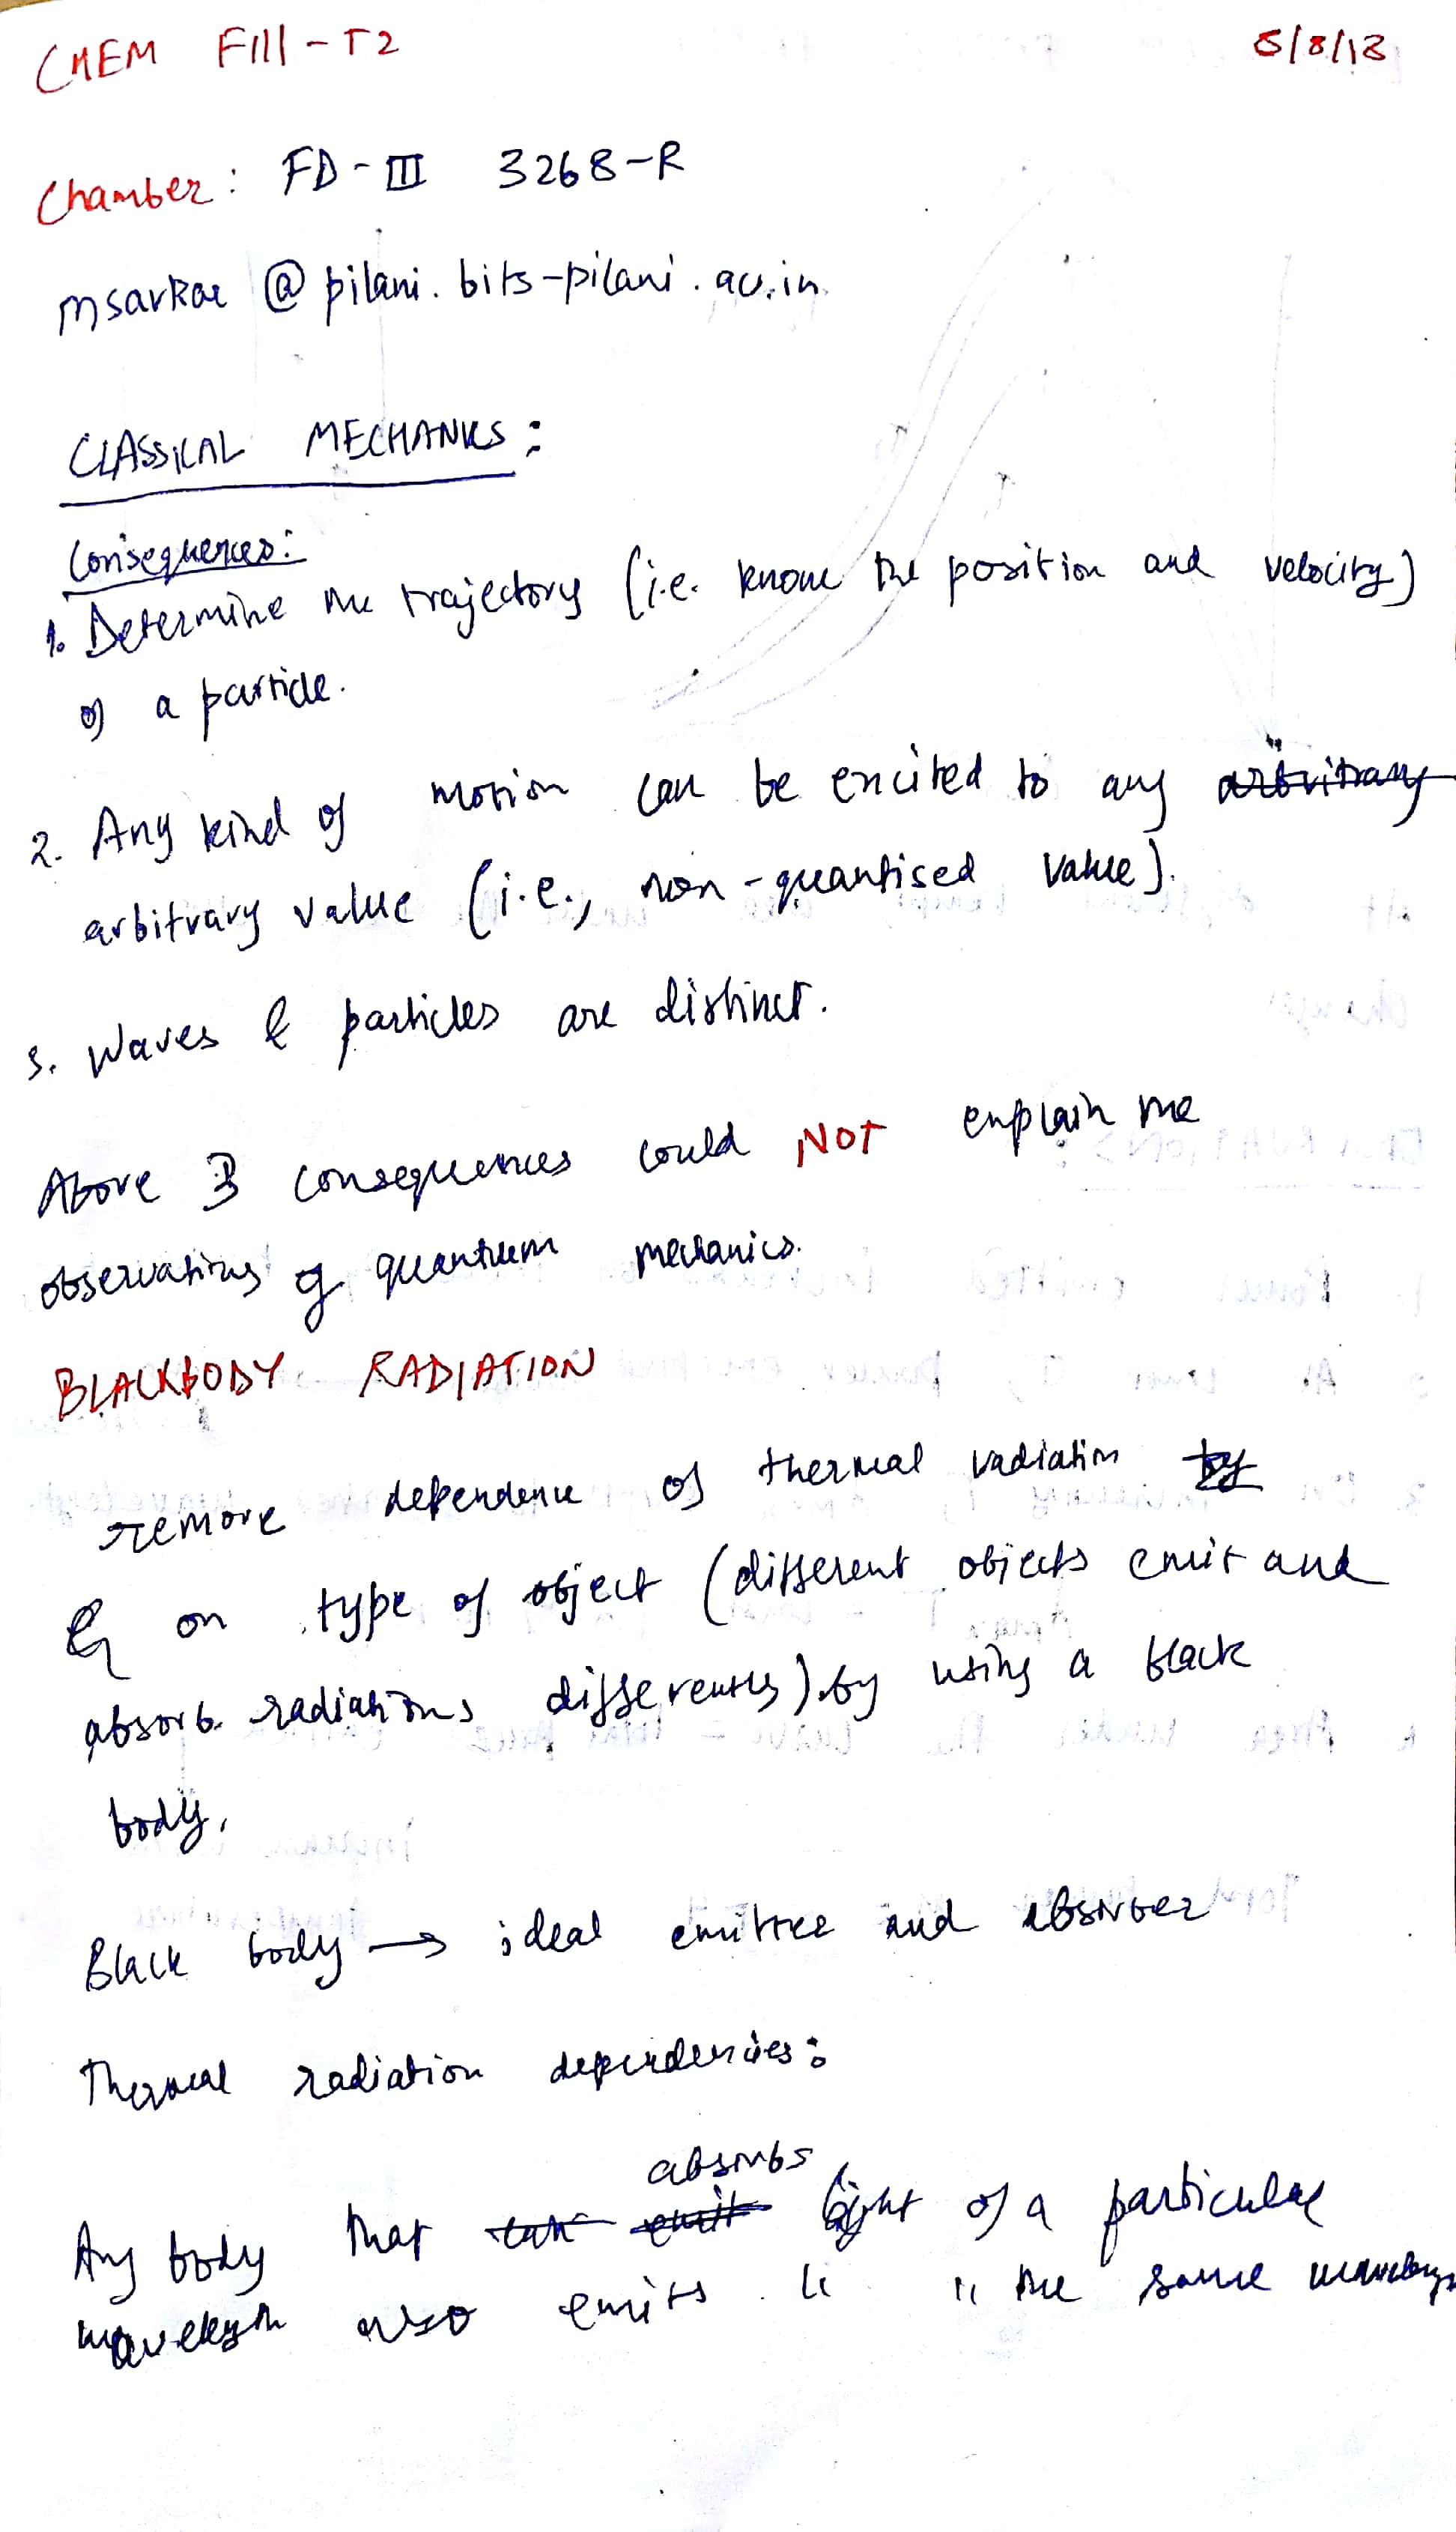 CHEM F111-T2 5/8/18
Chamber: FD-III 3268-R
msarkar @ pilani.bits-pilani.ac.in
CLASSICAL MECHANICS:
Consequences:
1. Determine the trajectory (i.e. know the position and velocity)
of a particle.
2. Any kind of motion can be excited to any arbitrary
arbitrary value (i.e., non-quantised value).
3. Waves & particles are distinct.
Above 3 consequences could NOT explain the
observations of quantum mechanics.
BLACKBODY RADIATION
remove dependence of thermal radiation by
on type of object (different objects emit and
absorb radiations differently) by using a black
body.
Black body → ideal emitter and absorber
Thermal radiation dependencies:
absorbs
Any body that can emit light of a particular
wavelength also emits " " the same wavelength